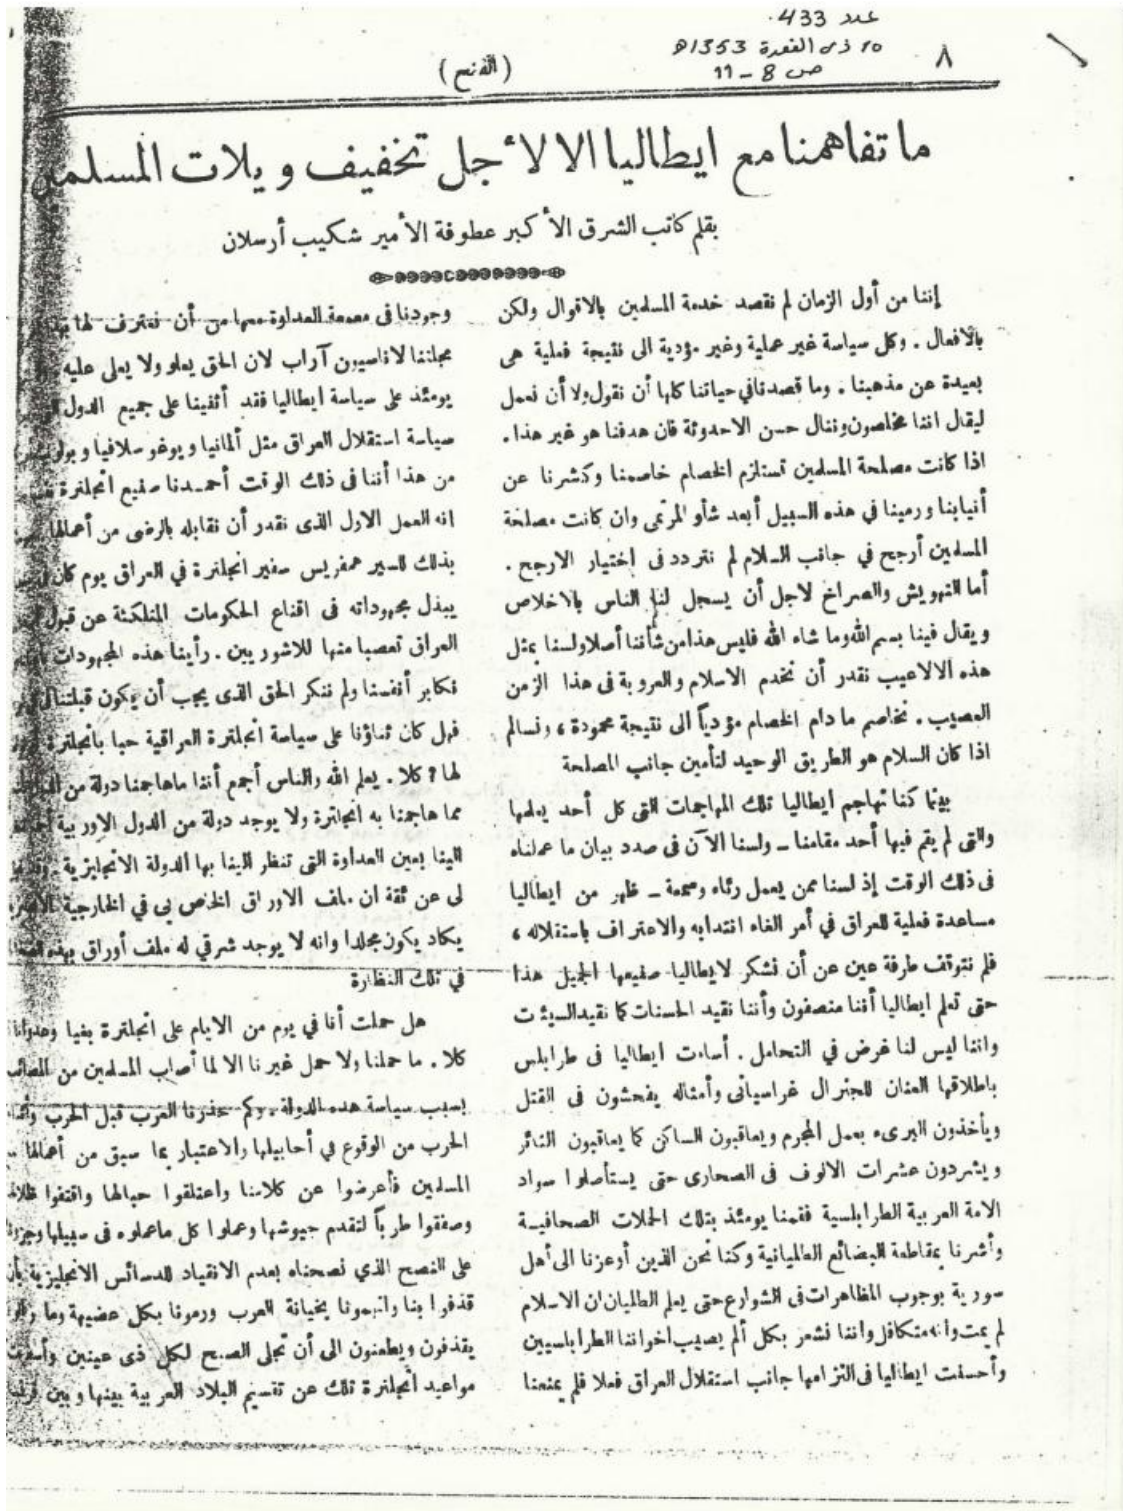 عدد 433.
10 ذي القعدة 1353هـ
ص 8 – 11
٨
(الفتح)
ما تفاهمنا مع ايطاليا الا لأجل تخفيف ويلات
بقلم كاتب الشرق الأكبر عطوفة الأمير شكيب أرسلان
إننا من أول الزمان لم نقصد خدمة المسلمين بالاقوال ولكن
بالافعال . وكل سياسة غير عملية وغير مؤدية الى نتيجة فعلية هى
بعيدة عن مذهبنا . وما قصدنا في حياتنا كلها أن نقول ولا أن نعمل
ليقال اننا مخلصون وننال حسن الاحدوثة فان هدفنا هو غير هذا .
اذا كانت مصلحة المسلمين تستلزم الخصام خاصمنا وكشرنا عن
أنيابنا ورمينا في هذه السبيل أبعد شأو المرتمى وان كانت مصلحة
المسلمين أرجح في جانب السلام لم نتردد فى اختيار الارجح .
أما التهويش والصراخ لاجل أن يسجل لنا الناس بالاخلاص
ويقال فينا بسم الله وما شاء الله فليس هذا من شأننا أصلا ولسنا بمثل
هذه الالاعيب نقدر أن نخدم الاسلام والعروبة فى هذا الزمن
العصيب . نخاصم ما دام الخصام مؤدياً الى نتيجة محمودة ، ونسالم
اذا كان السلام هو الطريق الوحيد لتأمين جانب المصلحة
بينما كنا نهاجم ايطاليا تلك المهاجمات التى كل أحد يعلمها
والتى لم يقم فيها أحد مقامنا ــ ولسنا الآن فى صدد بيان ما عملناه
فى ذلك الوقت إذ لسنا ممن يعمل رئاء وسمعة ــ ظهر من ايطاليا
مساعدة فعلية للعراق في أمر الغاء انتدابه والاعتراف باستقلاله ،
فلم نتوقف طرفة عين عن أن نشكر لايطاليا صنيعها الجميل هذا
حتى تعلم ايطاليا أننا منصفون وأننا نقيد الحسنات كما نقيد السيئات
واننا ليس لنا غرض في التحامل . أساءت ايطاليا فى طرابلس
باطلاقها العنان للجنرال غراسيانى وأمثاله يفحشون فى القتل
ويأخذون البرىء بعمل المجرم ويعاقبون الساكن كما يعاقبون الثائر
ويشردون عشرات الالوف فى الصحارى حتى يستأصلوا سواد
الامة العربية الطرابلسية فقمنا يومئذ بتلك الحملات الصحافية
وأشرنا بمقاطعة البضائع الطليانية وكنا نحن الذين أوعزنا الى أهل
سورية بوجوب المظاهرات فى الشوارع حتى يعلم الطليان ان الاسلام
لم يمت وانه متكافل واننا نشعر بكل ألم يصيب اخواننا الطرابلسيين
وأحسنت ايطاليا فى التزامها جانب استقلال العراق فعلا فلم يمنعنا
وجودنا فى معمعة العداوة معها من أن نعترف لها
مجلتنا لاناسيون آراب لان الحق يعلو ولا يعلى عليه
يومئذ على سياسة ايطاليا فقد أثنينا على جميع الدول
سياسة استقلال العراق مثل ألمانيا ويوغوسلافيا
من هذا أننا فى ذلك الوقت أحمدنا صنيع انجلترة
انه العمل الاول الذى نقدر أن نقابله بالرضى من أعمالها
بذلك للسير همفريس سفير انجلترة في العراق يوم كان
يبذل مجهوداته فى اقناع الحكومات المتلكئة عن قبول
العراق تعصبا منها للاشوريين . رأينا هذه المجهودات
نكابر أنفسنا ولم ننكر الحق الذى يجب أن يكون قبلتنا
فهل كان ثناؤنا على سياسة انجلترة العراقية حبا بانجلترة
لها ؟ كلا . يعلم الله والناس أجمع أننا ما هاجمنا دولة من
مما هاجمنا به انجلترة ولا يوجد دولة من الدول الاوربية
الينا بعين العداوة التى تنظر الينا بها الدولة الانجليزية
لى عن ثقة ان ملف الاوراق الخاص بى في الخارجية
يكاد يكون مجلدا وانه لا يوجد شرقي له ملف أوراق بهذه
في تلك النظارة
هل حملت أنا في يوم من الايام على انجلترة بغيا وعدوانا
كلا . ما حملنا ولا حمل غيرنا الا لما أصاب المسلمين من المصائب
بسبب سياسة هذه الدولة . وكم حذرنا العرب قبل الحرب
الحرب من الوقوع في أحابيلها والاعتبار بما سبق من أعمالها
المسلمين فأعرضوا عن كلامنا واعتلقوا حبالها واقتفوا
وصفقوا طرباً لتقدم جيوشها وعملوا كل ما عملوه فى سبيلها
على النصح الذي نصحناه بعدم الانقياد للدسائس الانجليزية بأن
قذفوا بنا واتهمونا بخيانة العرب ورمونا بكل عضيهة وما
يقذفون ويطعنون الى أن تجلى الصبح لكل ذى عينين
مواعيد انجلترة تلك عن تقسيم البلاد العربية بينها وبين